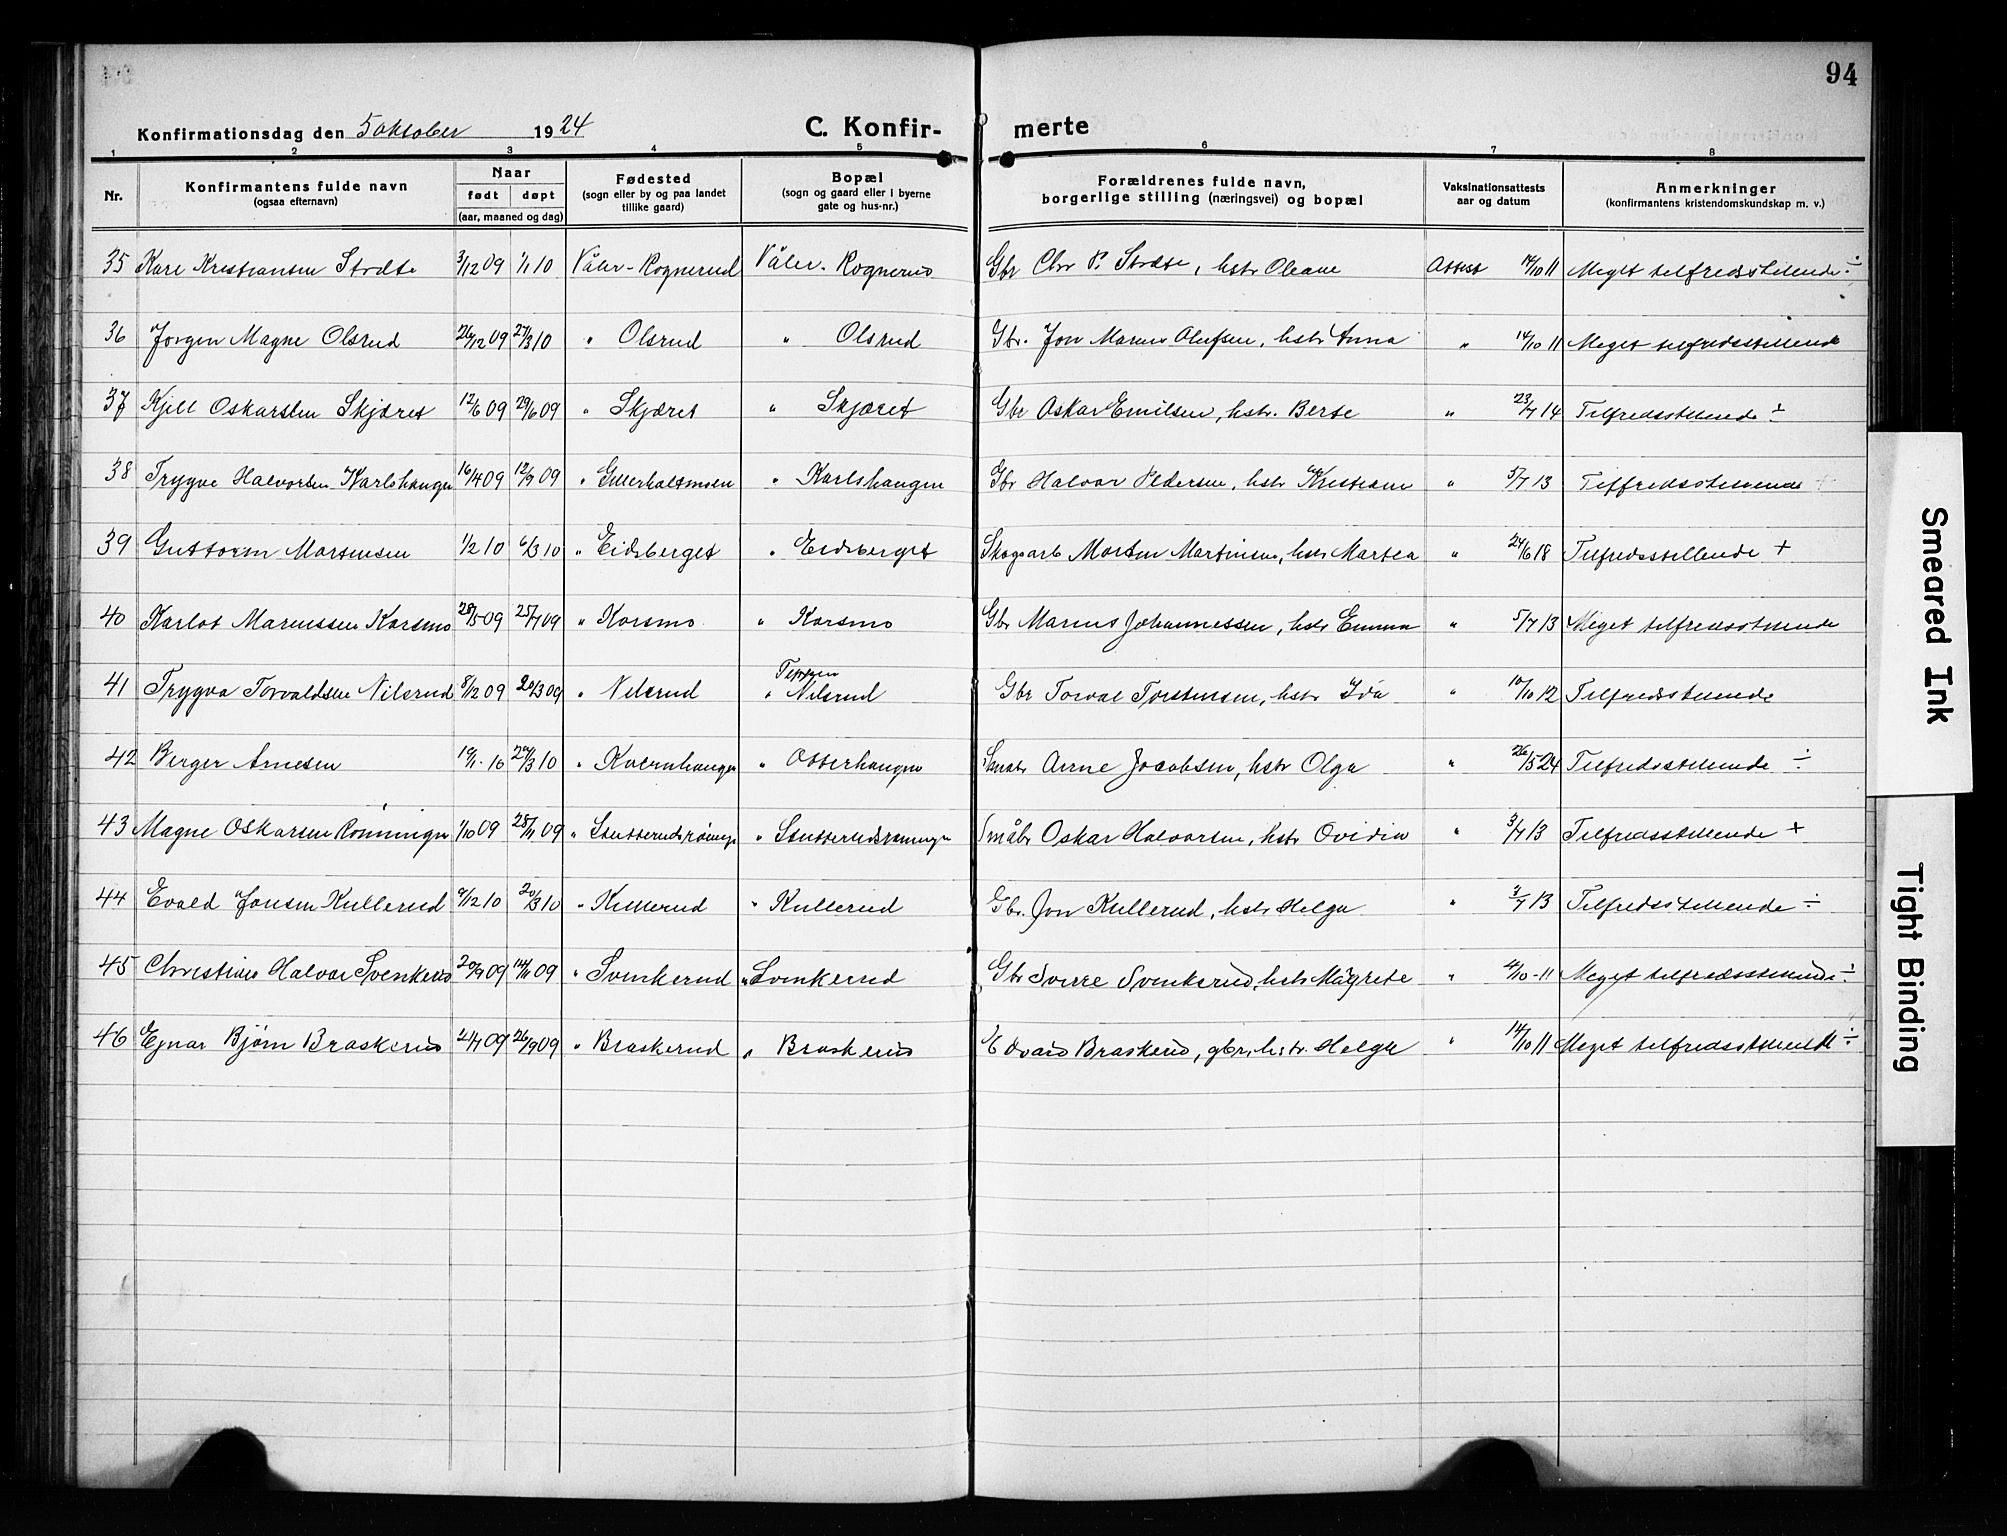 94
Konfirmationsdag den 5 oktober 1924 C. Konfir- merte
1 2 3 4 5 6 7 8
Nr. Konfirmantens fulde navn (ogsaa efternavn) Naar født døpt (aar, maaned og dag) Fødested (sogn eller by og paa landet tillike gaard) Bopæl (sogn og gaard eller i byerne gate og hus-nr.) Forældrenes fulde navn, borgerlige stilling (næringsvei) og bopæl Vaksinationsattests aar og datum Anmerkninger (konfirmantens kristendomskundskap m. v.)
35 Kare Kristiansen Stræte 3/12 09 1/1 10 Våler-Rognerud Våler-Rognerud Gbr Chr P. Stræte, hstr Oleane Attest 14/10 11 Meget tilfredsstillende ÷
36 Jørgen Magne Olsrud 26/12 09 27/3 10 " Olsrud " Olsrud Gbr. Jon Marius Olufsen, hstr Anna " 14/10 11 Meget tilfredsstillende
37 Kjell Oskarsten Skjæret 12/6 09 29/6 09 " Skjæret " Skjæret Gbr Oskar Emilsen, hstr. Berte " 23/7 14 Tilfredsstillende ÷
38 Trygve Halvorsen Karlshaugen 16/4 09 12/9 09 " Gillerholtmoen " Karlshaugen Gbr Halvor Pedersen, hstr Kristiane " 5/7 13 Tilfredsstillende +
39 Guttorm Mortensen 1/2 10 6/3 10 " Eidsberget " Eidsberget Skogsarb Morten Martinsen, hstr Martea " 24/6 18 Tilfredsstillende +
40 Karlot Mariussen Korsmo 28/5 09 25/7 09 " Korsmo " Korsmo Gbr Marius Johannessen, hstr Emma " 5/7 13 Meget tilfredsstillende
41 Trygve Torvaldsen Nilsrud 8/12 09 20/3 09 " Nilsrud " Teppen Nilsrud Gbr Torval Torstensen, hstr Ida " 10/10 12 Tilfredsstillende
42 Berger Arnesen 19/1 10 20/3 10 " Kvernhaugen " Otterhaugen Småbr Arne Jacobsen, hstr Olga " 26/5 24 Tilfredsstillende ÷
43 Magne Oskarsen Rønningen 1/10 09 28/11 09 " Stutterudsrøninge " Stutterudsrøningen Småbr Oskar Halvorsen, hstr Ovidia " 3/7 13 Tilfredsstillende +
44 Evald Jonsen Kullerud 9/12 10 20/3 10 " Kullerud " Kullerud Gbr. Jon Kullerud, hstr Helga " 3/7 13 Tilfredsstillende ÷
45 Christian Halvar Svenkerud 20/9 09 14/11 09 " Svenkerud " Svenkerud Gbr Sverre Svenkerud, hstr Magrete " 4/10-11 Meget tilfredsstillende ÷
46 Ejnar Bjørn Braskerud 2/7 09 26/9 09 " Braskerud " Braskerud Edvard Braskerud, gbr, hstr. Helga " 14/10 11 Meget tilfredsstillende ÷
Smeared Ink
Tight Binding